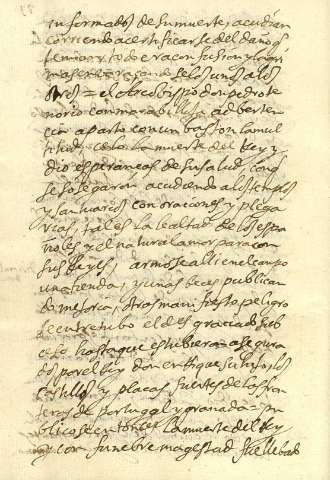 informados de su muerte, acudian
corriendo a certificarse del daño y
temio y todo era confusion y lagri
mas
otros = el arcobispo don pedro te
norio con marabillosa adberten
cia aparto con un baston la mul
titud, celo la muerte del Rey y
dio esperancas de su salud, con q
se sosegaron acudiendo a los templos
y santuarios con oraciones y plega
rias, tal es la lealtad de los espa
ñoles y el natural amor para con
sus Reyes, armose alli en el campo
una tienda, y unas veces publican
do mejoria, otras manifiesto peligro
se entretubo el desgraciado sub
ceso hasta que estubieron asegura
dos por el Rey don enrrique su hijo los
castillos y placas fuertes de las fron
teras de Portugal y granada = pu
blicose entonces la muerte del Rey
y con funebre magestad fue llebado